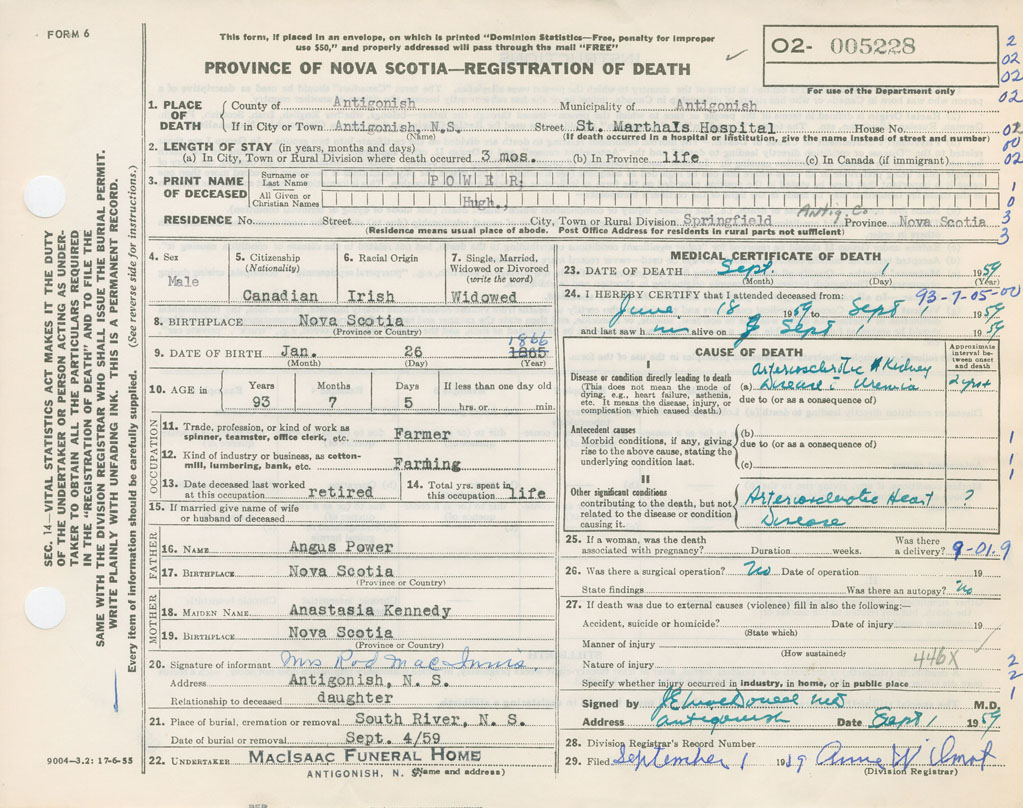 FORM 6
This form, if placed in an envelope, on which is printed "Dominion Statistics—Free, penalty for improper
use $50," and properly addressed will pass through the mail "FREE"
O2- 005228
PROVINCE OF NOVA SCOTIA—REGISTRATION OF DEATH
For use of the Department only
2
02
02
02
02
00
02
1
0
3
3
1. PLACE OF DEATH
County of Antigonish Municipality of Antigonish
If in City or Town Antigonish, N.S. Street St. Martha's Hospital House No.
(Name) (If death occurred in a hospital or institution, give the name instead of street and number)
2. LENGTH OF STAY (in years, months and days)
(a) In City, Town or Rural Division where death occurred 3 mos. (b) In Province life (c) In Canada (if immigrant)
3. PRINT NAME OF DECEASED
Surname or Last Name POWER,
All Given or Christian Names Hugh.,
Antig. Co.
RESIDENCE No. Street City, Town or Rural Division Springfield Province Nova Scotia
(Residence means usual place of abode. Post Office Address for residents in rural parts not sufficient)
SEC. 14—VITAL STATISTICS ACT MAKES IT THE DUTY
OF THE UNDERTAKER OR PERSON ACTING AS UNDER-
TAKER TO OBTAIN ALL THE PARTICULARS REQUIRED
IN THE "REGISTRATION OF DEATH" AND TO FILE THE
SAME WITH THE DIVISION REGISTRAR WHO SHALL ISSUE THE BURIAL PERMIT.
WRITE PLAINLY WITH UNFADING INK. THIS IS A PERMANENT RECORD.
Every item of information should be carefully supplied. (See reverse side for instructions.)
4. Sex
Male
5. Citizenship
(Nationality)
Canadian
6. Racial Origin
Irish
7. Single, Married,
Widowed or Divorced
(write the word)
Widowed
8. BIRTHPLACE Nova Scotia
(Province or Country)
1866
9. DATE OF BIRTH Jan. 26 1865
(Month) (Day) (Year)
10. AGE in
Years Months Days If less than one day old
93 7 5 hrs. or min.
OCCUPATION
11. Trade, profession, or kind of work as
spinner, teamster, office clerk, etc. Farmer
12. Kind of industry or business, as cotton-
mill, lumbering, bank, etc. Farming
13. Date deceased last worked
at this occupation retired
14. Total yrs. spent in
this occupation life
15. If married give name of wife
or husband of deceased
FATHER
16. NAME Angus Power
17. BIRTHPLACE Nova Scotia
(Province or Country)
MOTHER
18. MAIDEN NAME Anastasia Kennedy
19. BIRTHPLACE Nova Scotia
(Province or Country)
20. Signature of informant Mrs Rod MacInnis.
Address Antigonish, N. S.
Relationship to deceased daughter
21. Place of burial, cremation or removal South River, N. S.
Date of burial or removal Sept. 4/59
22. UNDERTAKER MACISAAC FUNERAL HOME
ANTIGONISH, N. S. (Name and address)
9004—3.2: 17-6-55
MEDICAL CERTIFICATE OF DEATH
23. DATE OF DEATH Sept. 1 1959
(Month) (Day) (Year)
24. I HEREBY CERTIFY that I attended deceased from: 93-7-05-00
June 18 1959 to Sept 1 1959
and last saw him alive on Sept 1 1959
CAUSE OF DEATH
Approximate
interval be-
tween onset
and death
I
Disease or condition directly leading to death
(This does not mean the mode of
dying, e.g., heart failure, asthenia,
etc. It means the disease, injury, or
complication which caused death.)
Arteriosclerotic Kidney
(a) Disease - Uremia 2 yrs+
due to (or as a consequence of)
Antecedent causes
Morbid conditions, if any, giving
rise to the above cause, stating the
underlying condition last.
(b)
due to (or as a consequence of)
(c)
1
1
1
II
Other significant conditions
contributing to the death, but not
related to the disease or condition
causing it.
Arteriosclerotic Heart ?
Disease
25. If a woman, was the death
associated with pregnancy? Duration weeks.
Was there
a delivery? 9-01.9
26. Was there a surgical operation? No Date of operation 19
State findings Was there an autopsy? No
27. If death was due to external causes (violence) fill in also the following:—
Accident, suicide or homicide? Date of injury 19
(State which)
Manner of injury
(How sustained)
446X
Nature of injury
2
2
1
Specify whether injury occurred in industry, in home, or in public place
Signed by M.D.
Address Antigonish Date Sept 1 1959
28. Division Registrar's Record Number
29. Filed September 1 1959 Anne Wilmot
(Division Registrar)